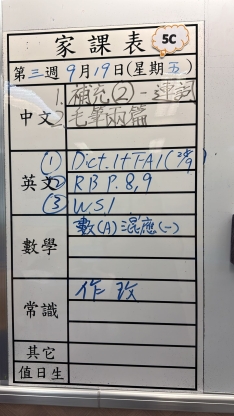 家課表 5C
第三週9月19日(星期五)
中文
1. 補充(2)-連詞
2. 毛筆兩篇
英文
(1) Dict. 1+TA1(26/9)
(2) RB P.8,9
(3) W.S.1
數學
數(A)混應(一)
常識
作改
其它
值日生